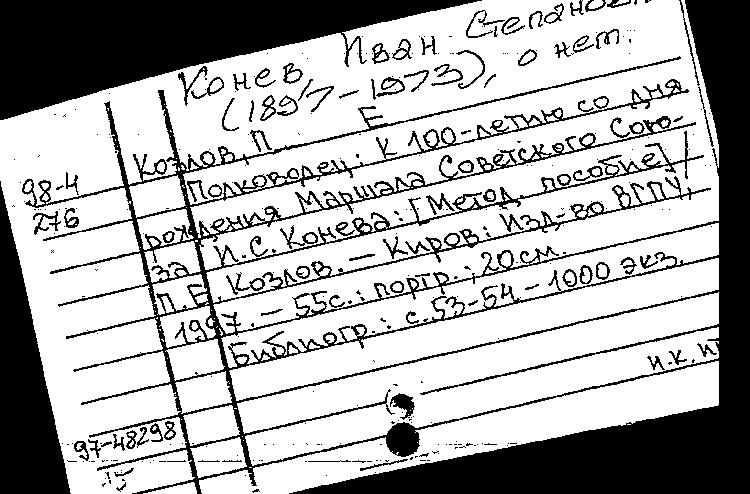 Конев Иван Степанович
(1897-1973), о нем.
98-4
276
Козлов, П. Е
Полководец: К 100-летию со дня
рождения Маршала Советского Сою-
за И.С. Конева: [Метод. пособие] /
П.Е. Козлов. — Киров: Изд-во ВГПУ,
1997. — 55с.: портр.; 20см.
Библиогр.: с.53-54 - 1000 экз.
И.К.
97-48298
15